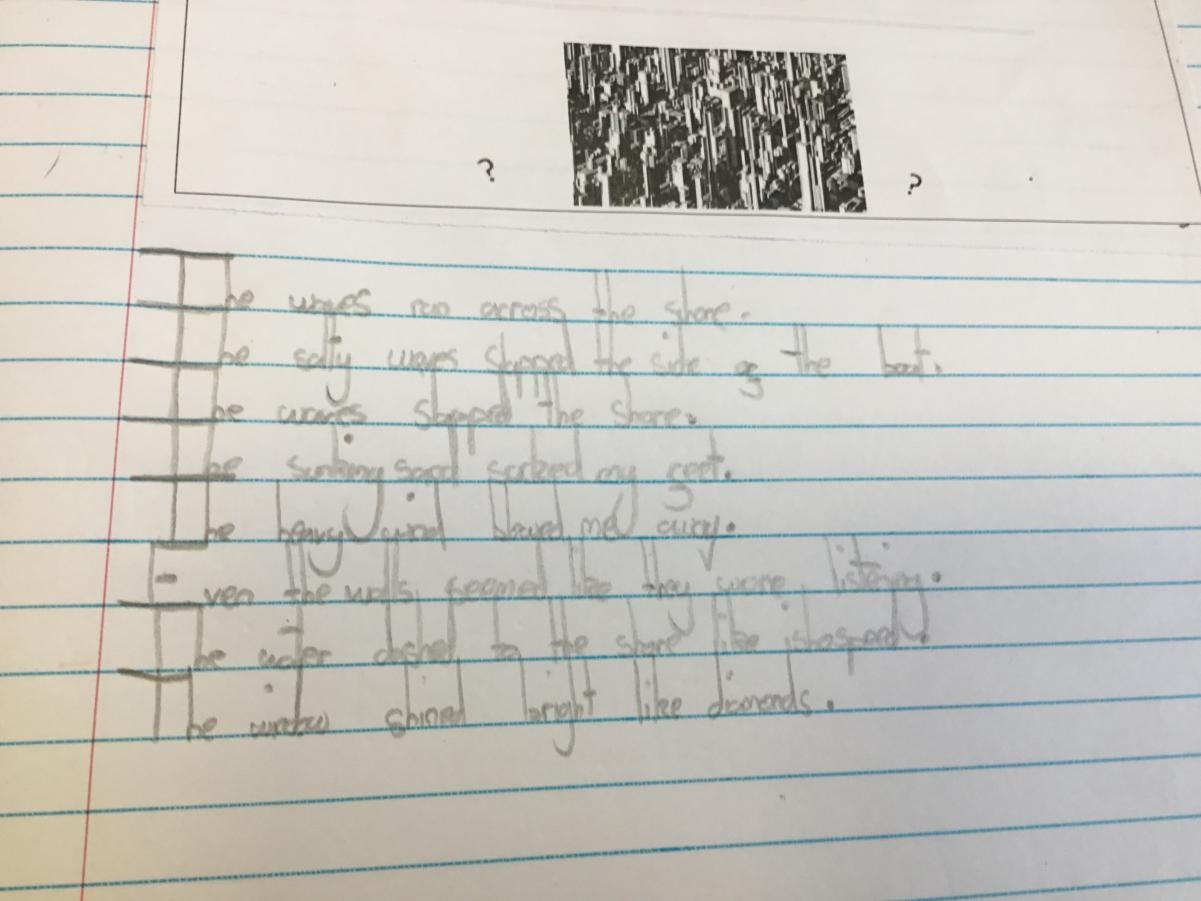 ? ?
The waves ran across the shore.
The salty waves slapped the side of the boat.
The waves slapped the shore.
The sinking sand my feet.
The heavy wind blowed me away.
Even the walls seemed like they were listening.
The water dashed to the shore like
The window shined bright like diamonds.